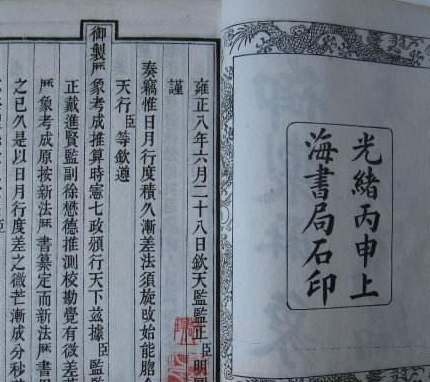 光緒丙申上
海書局石印
雍正八年六月二十八日欽天監監正臣明
謹
奏竊惟日月行度積久漸差法須旋改始能
天行臣等欽遵
御製厯象考成推算時憲七政頒行天下茲據臣
正戴進賢監副徐懋德推測校勘覺有微差
厯象考成原按新法厯書纂定而新法厯書
之已久是以日月行度差之微芒漸成分秒